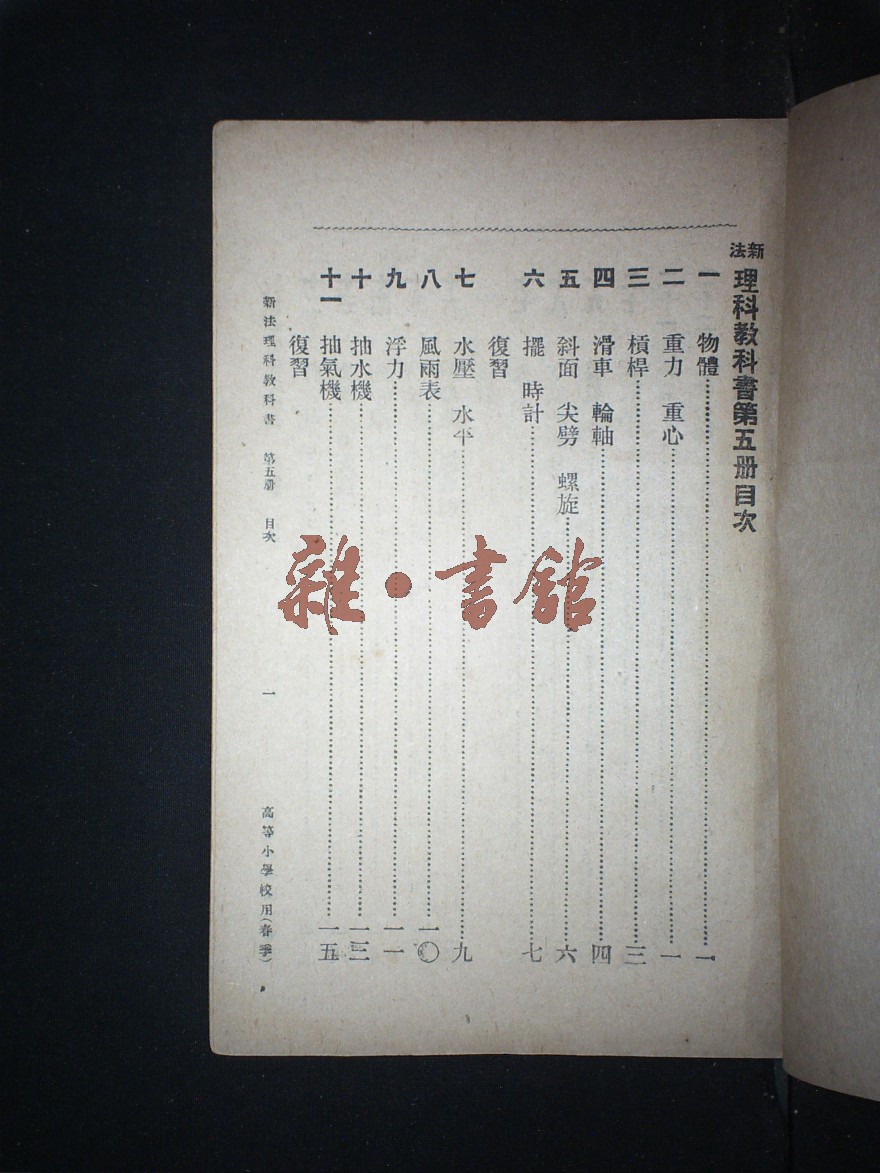 新法理科教科書第五册目次
一 物體 一
二 重力 重心 一
三 槓桿 三
四 滑車 輪軸 四
五 斜面 尖劈 螺旋 六
六 擺 時計 七
復習
七 水壓 水平 九
八 風雨表 一〇
九 浮力 一一
十 抽水機 一三
十一 抽氣機 一五
復習
新法理科教科書 第五册 目次 一 高等小學校用(春季)
雜·書館